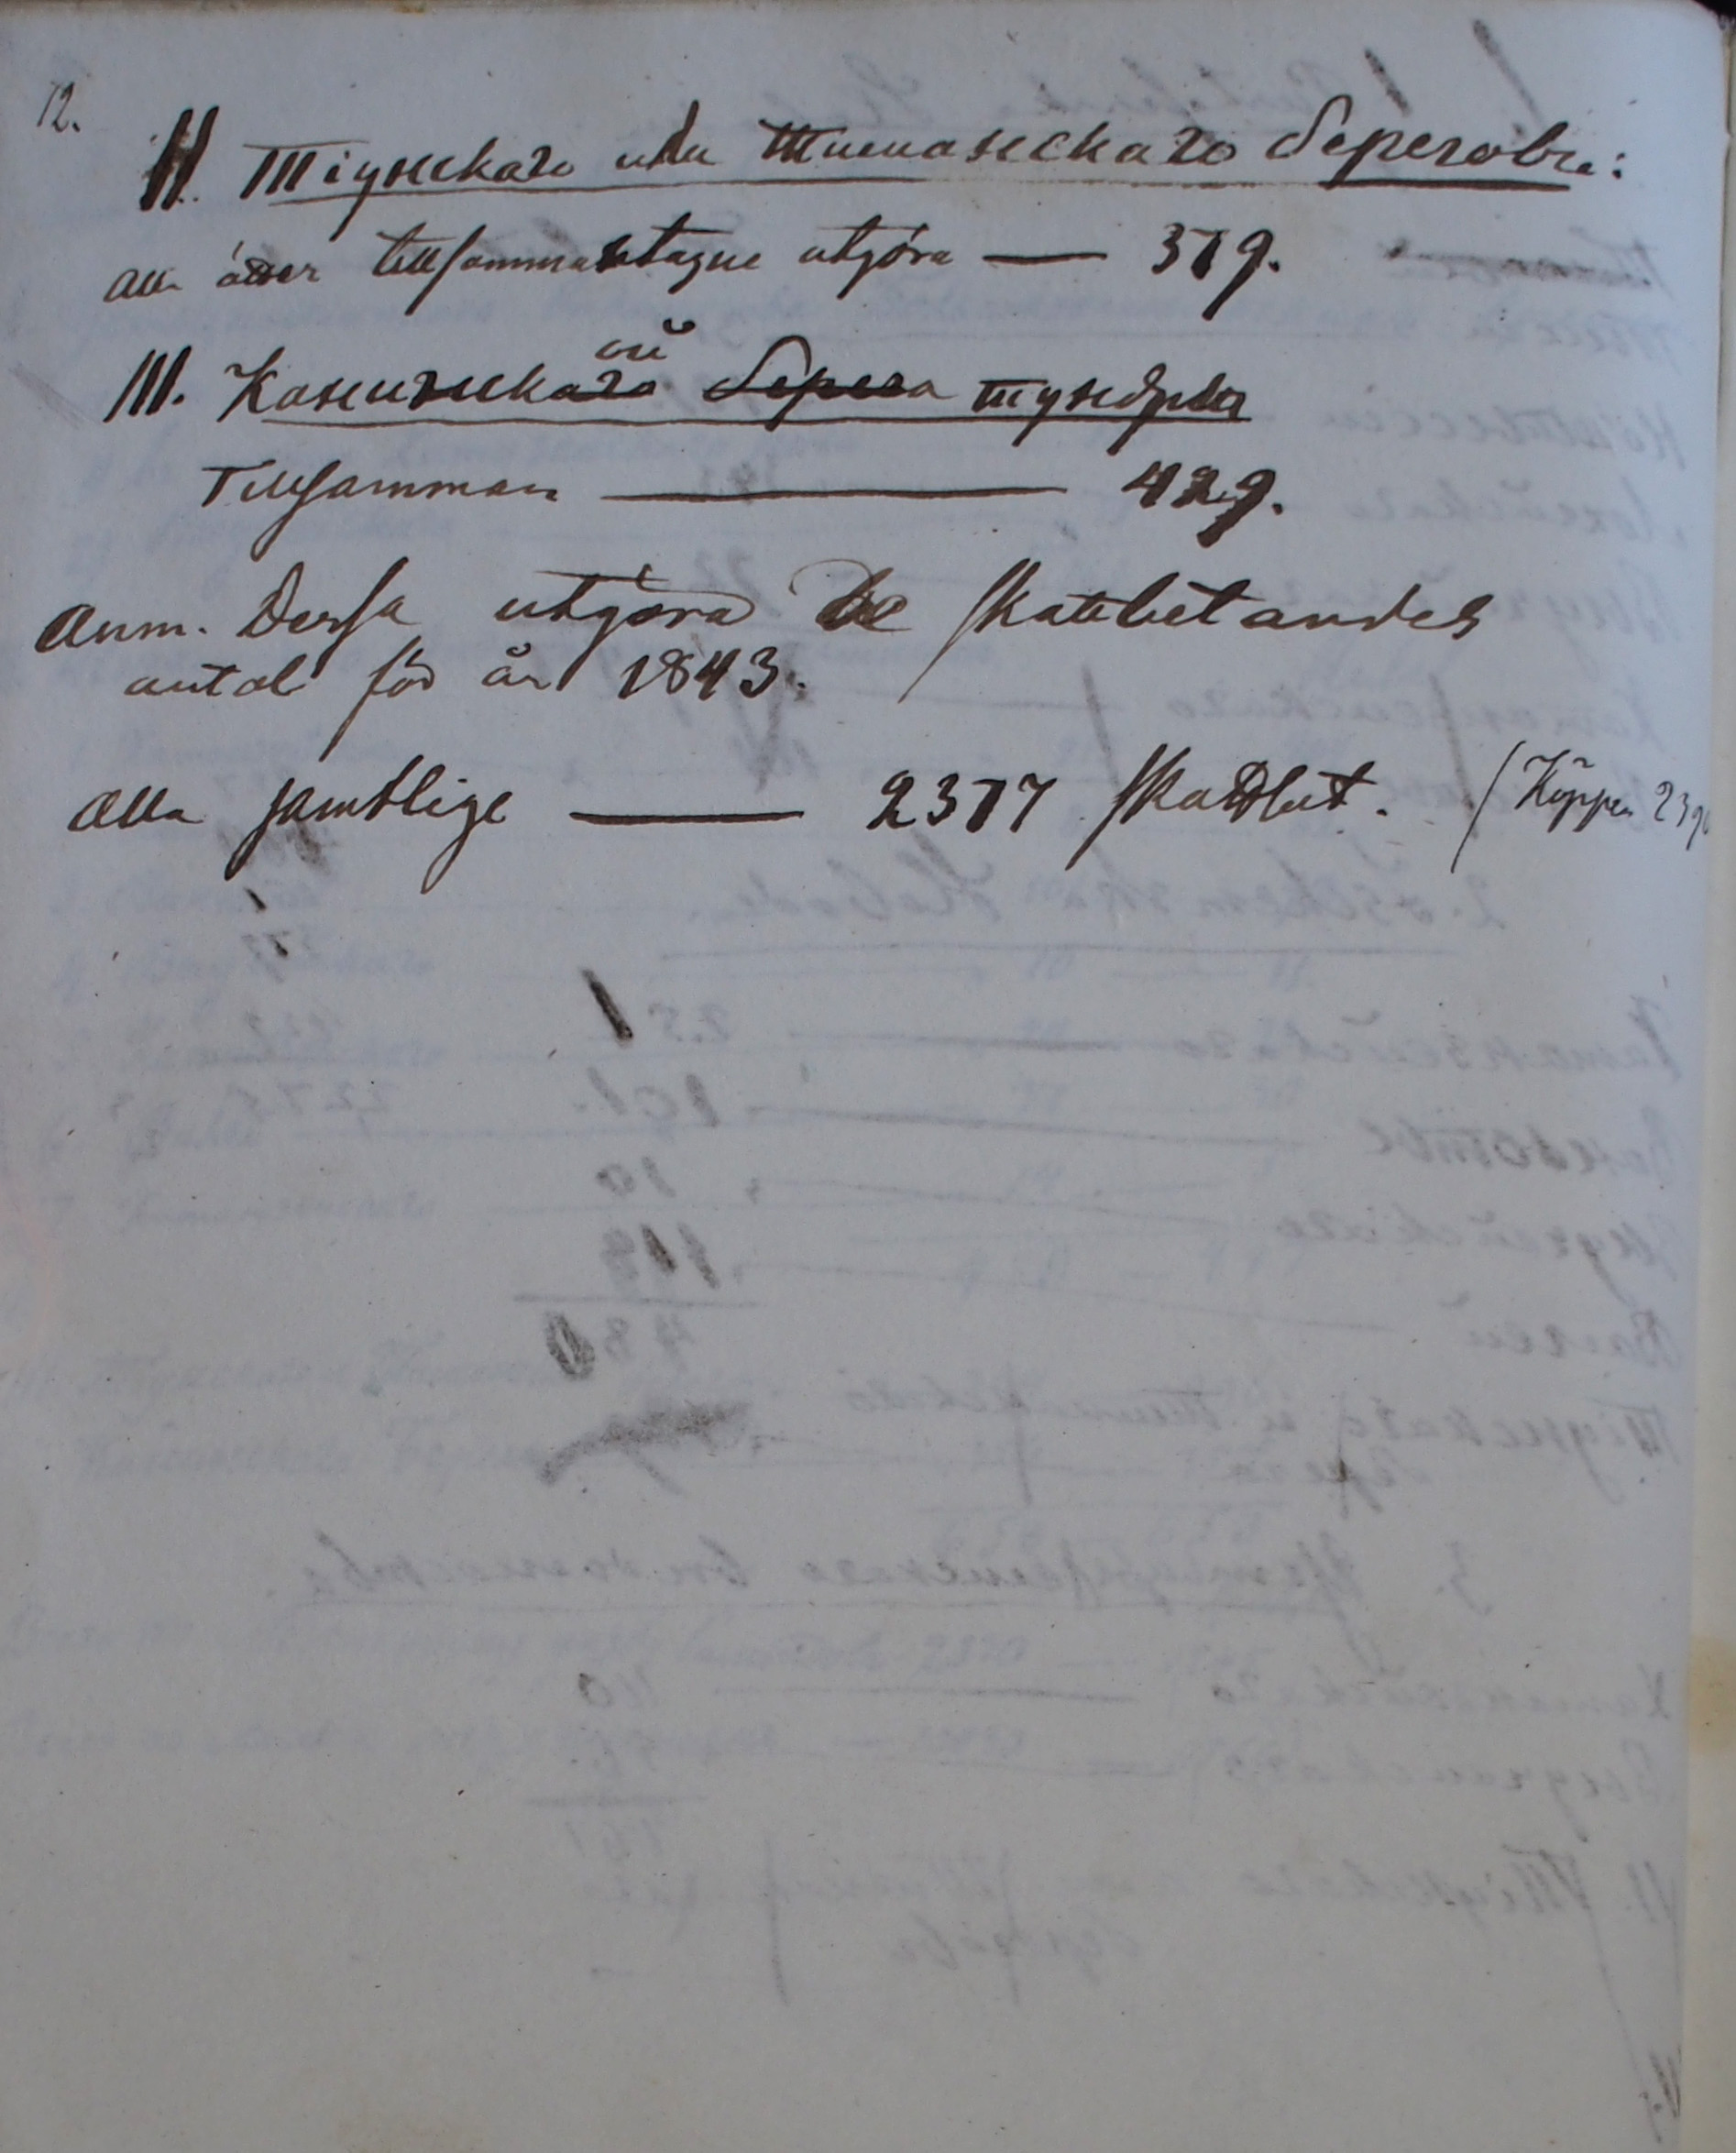 12.
II. Тіунскаго или Тиманскаго береговъ:
Alla ätter tillsammanstagne utgöra — 379.
ой
III. Канинскаго берега тундры
Tillsamman — 429.
Anm. Dessa utgöra de skattbetandes
antal för år 1843.
Alla samtlige — 2377 skattbet. (Köppen 2390